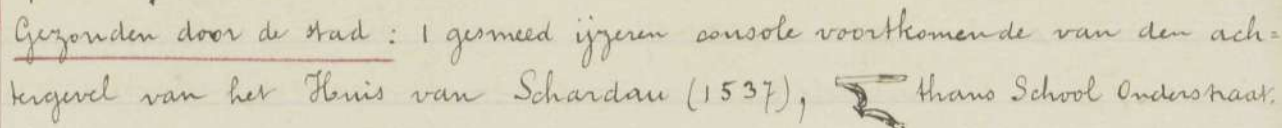 Gezonden door de stad : 1 gesmeed ijzeren console voortkomende van den ach=
tergevel van het Huis van Schardau (1537), thans School Onderstraat.